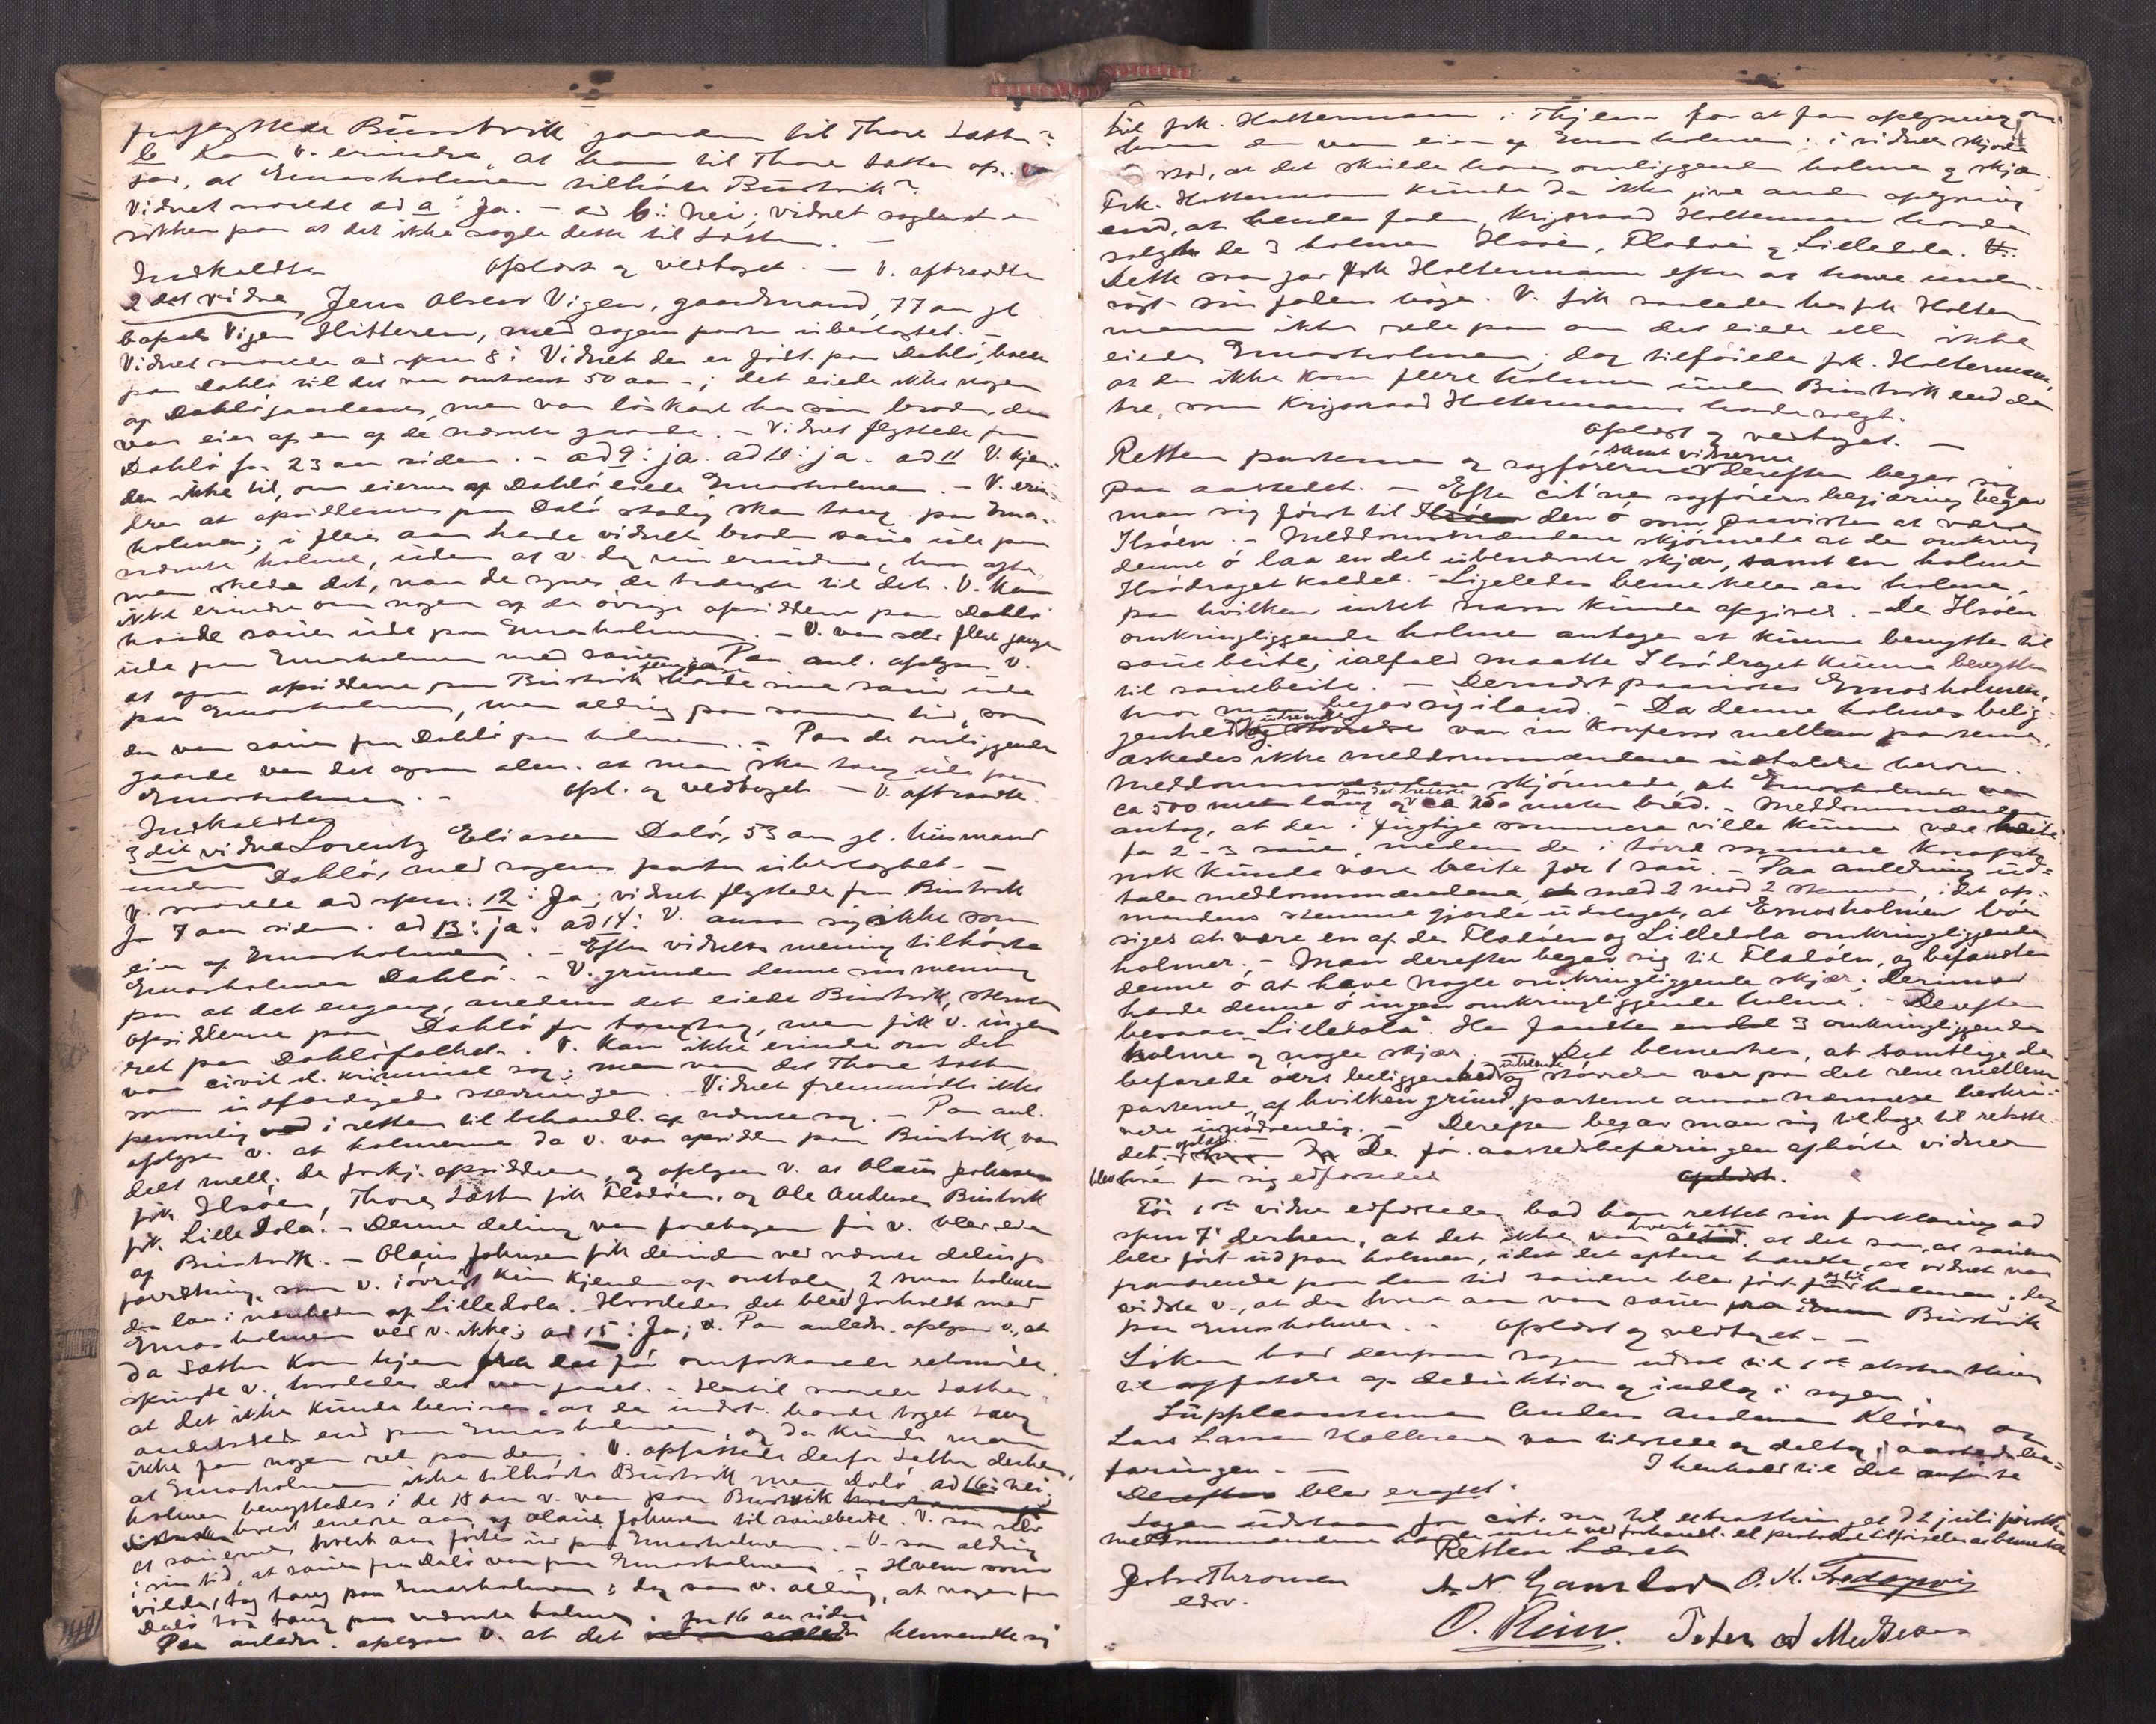 fraflyttede Búsvik gaarden til Thore Sæther?
b Kan v. erindre, at han til Thore Sæther op..
gav, at Emosholmen tilhörte Bustvik?
Vidnet svarede ad a: Ja. – ad b: nei; vidnet
sikker paa at det ikke sagde dette til Sæther. –
Indkaldtes oplæst og vedtaget. – V. aftraadte
2det vidne, Jens Olsen Vigen, gaardmand, 77 aar gl
bopæl Vigen Hitteren, med sagens parter ubeslægtet. –
Vidnet svarede ad spm 8: Vidnet der er födt paa Dahlö, boede
paa Dahlö til det var omtrent 50 aar –; det eiede ikke nogen
af Dahlögaardene, men var löskarl hos sin broder, der
var eier af en af de nævnte gaarde. – Vidnet flyttede fra
Dahlö for 23 aar siden. – ad 9: ja. ad 10: ja. ad 11 V. kjen-
der ikke til, om eierne af Dahlö eiede Emosholmen. – V. erin-
drer at opsidderne paa Dalö stadig skar tang paa Emos-
holmen; i flere aar havde vidnets broder sauer ude paa
nævnte holme, uden at v. dog nu erindrer, hvor ofte
men skede det, naar de synes de trængte til det. V. kan
ikke erindre om nogen af de övrige opsiddere paa Dahlö
havde sauer ude paa Emosholmen. – V. var selv flere gange
ude paa Emosholmen med sauer. Paa anl. oplyser v.
at ogsaa opsidderne paa Bustvik flere gange havde sine sauer ude
paa Emosholmen, men aldrig paa samme tid, som
der var sauer fra Dahlö paa holmen. – Paa de omliggende
gaarde var det ogsaa alm. at man skar tang ude paa
Emosholmen. – opl. og vedtaget – V. aftraadte.
Indkaldtes
3die vidne Lorentz Eliassen Dalö, 53 aar gl. husmand
under Dahlö, med sagens parter ubeslægtet. –
V. svarede ad spm: 12: Ja; vidnet flyttede fra Bustvik
for 7 aar siden. ad 13: ja: ad 14: V. ansaa sig ikke som
eier af Emosholmen. – Efter vidnets mening tilhörte
Emosholmen Dahlö. – V. grunder denne sin mening
paa at det engang, medens det eiede Bustvik, stevnte
opsidderne paa Dahlö for tangtag, men fik v. ingen
ret paa Dahlöfolket. V. kan ikke erindre om det
var civil el. kriminel sag; men var det Thore Sæther
som udfærdigede stevningen. – Vidnet fremmödte ikke
personlig i retten til behandl. af nævnte sag. – Paa anl.
oplyser v. at holmerne da v. var opsidder paa Bustvik, var
delt mell. de forkj. opsiddere, og oplyser v. at Olaus Johnsen
fik Ilsöen, Thore Sæther fik Fladöen, og Ole Andersen Bustvik
fik Lille Dola. – Denne deling var foretagen för v. blev eier
af Bustvik. – Olaus Johnsen fik desuden ved nævnte delings
forretning, som v. iövrigt kun kjender af omtale, 2 smaa holmer
der laa i nærheden af Lilledola. Hvorledes det blev forholdt med
Emosholmen ved v. ikke; ad 15: Ja; Paa anledn. oplyser v., at
da Sæther kom hjem fra det för omforkarede retsmöde
spurgte v., hvorledes det var gaaet. – Hertil svarede Sæther
at det ikke kunde bevises at de indst. havde taget tang
andetsteds end paa Emosholmen, og da kunde man
ikke faa nogen ret paa dem. V. opfattede derfor Sæther derhen,
at Emosholmen ikke tilhörte Bustvik men Dalö. ad 16: nei;
holmen benyttedes i de 18 aar v. var paa Bustvik
hvert eneste aar af Olaus Johnsen til sauebeite. V. saa selv
at sauerne hvert aar förtes ud paa Emosholmen. – V. saa aldrig
i sin tid, at sauer fra Dalö var paa Emosholmen. – Hvem som
vilde, tog tang paa Emosholmen; dog saa v. aldrig, at nogen fra
Dalö tog tang paa nævnte holme. for 16 aar siden
Paa anledn. oplyser v. at det henvendte sig
til frk. Holtermann i Thjem for at faa oplysning om
hvem der var eier af Emosholmen; i vidnets skjöde
stod, at det skulde have omliggende holme og skjær.
Frk. Holtermann kunde da ikke give anden oplysning
end, at hendes fader, Krigsraad Holtermann havde
solgt de 3 holmer Ilsöen, Fladöen og Lilledola.
Dette svar gav frk Holtermann efter at have under-
sögt sin faders böger. V. fik saaledes hos frk Holter-
mann ikke rede paa om det eiede eller ikke
eiede Emosholmen; dog tilföiede frk. Holtermann,
at der ikke kom flere holmer under Bustvik end de
tre, som Krigsraad Holtermann havde solgt.
oplæst og vedtaget. –
Retten parterne og sagförerne samt vidnerne derefter begav sig
paa aastedet. – Efter cit'ns sagförers begjæring begav
man sig först til den ö som paavistes at være
Ilsöen. – Meddomsmændene skjönnede at der omkring
denne ö laa endel ubenævnte skjær, samt en holme
Ilsödraget kaldet. – Ligeledes bemerkedes en holme,
paa hvilken intet navn kunde opgives. – De Ilsöen
omkringliggende holme antages at kunne benyttes til
sauebeite; ialfald maatte Ilsödraget kunne benyttes
til sauebeite. – Dernæst paavistes Emosholmen,
hvor man begav sig iland. – Da denne holmes belig-
genhed og udseende var in konfesso mellem parterne,
æskedes ikke meddomsmændenes udtalelse herom.
Meddomsmændene skjönnede, at Emosholmen var
ca 500 meter lang og paa det bredeste ca 200 meter bred. – Meddomsmændene
antog, at der i fugtige sommere vilde kunne være beite
for 2–3 sauer, medens der i törre sommere knapt
nok kunde være beite for 1 sau. – Paa anledning ud-
taler meddomsmændene, med 2 mod 2 stemmer, idet op-
mandens stemme gjorde udslaget, at Emosholmen bör
siges at være en af de Fladöen og Lilledola omkringliggende
holmer. – Man derefter begav sig til Fladöen, og befandtes
denne ö at have nogle omkringliggende skjær; derimod
havde denne ö ingen omkringliggende holme. – Derefter
besaaes "Lilledola". Her fandtes endel 3 omkringliggende
holme og nogle skjær. – Det bemerkes, at samtlige de
befarede öers beliggenhed udseende og störrelse var paa det rene mellem
parterne, af hvilken grund parterne ansaa nærmere beskri-
velse unödvendig. – Derefter begav man sig tilbage til retsste-
det. De för aastedsbefaringen afhörte vidner
blev hver for sig edfæstede
För 1ste vidne edfæstedes bad han rettet sin forklaring ad
spm 7 derhen, at det ikke var hvert aar at det saa, at sauerne
blev fört ud paa holmen, idet det oftere hændte, at vidnet var
fraværende paa den tid sauerne blev fört til holmen; dog
vidste v., at der hvert aar var sauer Bustvik
paa Emosholmen. – oplæst og vedtaget. –
Löken bad derpaa sagen udsat til 1ste ekstrathing
til affattelse af deduktion og indlæg i sagen.
Suppleanterne Anders Andersen Klöven og
Lars Larsen Kallerven var tilstede og deltog i aastedsbe-
faringen. – I henhold til det anförte
blev eragtet:
Sagen udstaar for cit. sn. til extrathing d 2 juli förstk.
meddomsmændene intet ved forhandl. el protokoltilförselen at bemerke
Retten hævet
John Thronsen A. N. Gamlad O. K. Fredagsvig
edsv.
O. Rein. Peter A Madsen